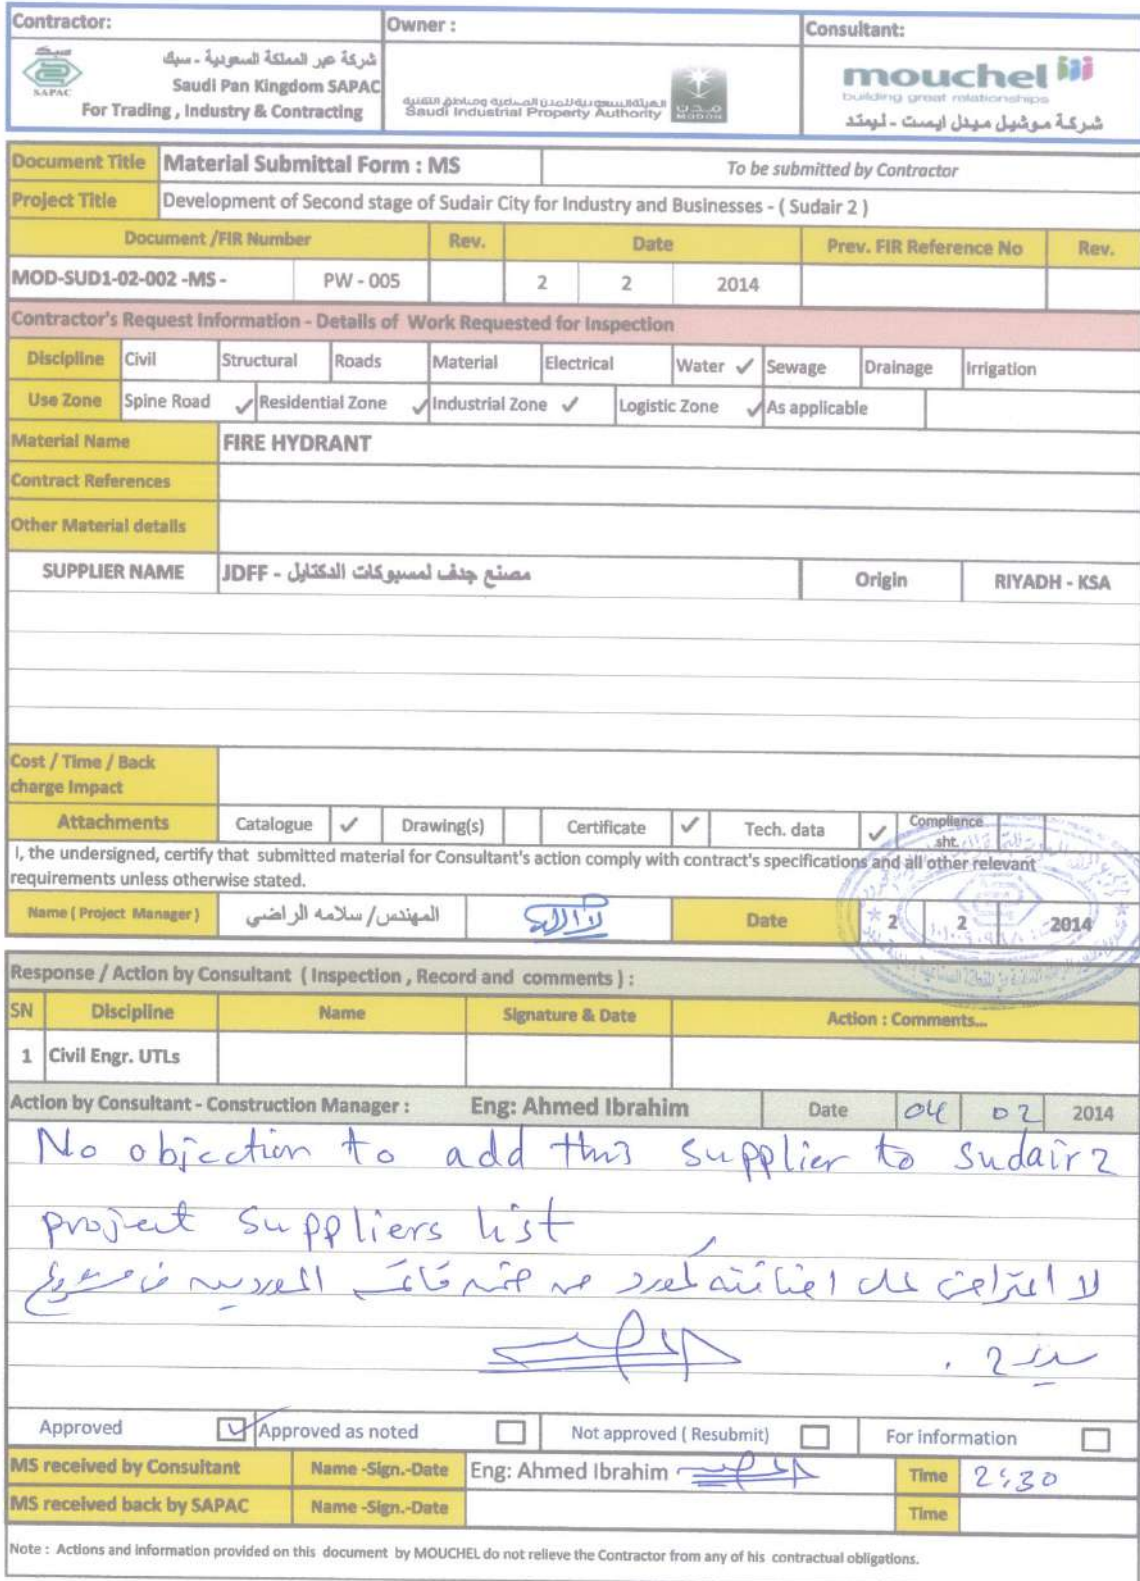 Contractor:
Owner :
Consultant:
سبك
SAPAC
شركة عبر المملكة السعودية - سبك
Saudi Pan Kingdom SAPAC
For Trading , Industry & Contracting
الهيئة السعودية للمدن الصناعية ومناطق التقنية
Saudi Industrial Property Authority
مدن
MODON
mouchel
building great relationships
شركة موشيل ميدل ايست - ليمتد
Document Title Material Submittal Form : MS To be submitted by Contractor
Project Title Development of Second stage of Sudair City for Industry and Businesses - ( Sudair 2 )
Document /FIR Number Rev. Date Prev. FIR Reference No Rev.
MOD-SUD1-02-002 -MS - PW - 005 2 2 2014
Contractor's Request Information - Details of Work Requested for Inspection
Discipline Civil Structural Roads Material Electrical Water ✓ Sewage Drainage Irrigation
Use Zone Spine Road ✓ Residential Zone ✓ Industrial Zone ✓ Logistic Zone ✓ As applicable
Material Name FIRE HYDRANT
Contract References
Other Material details
SUPPLIER NAME JDFF - مصنع جدف لمسبوكات الدكتايل Origin RIYADH - KSA
Cost / Time / Back
charge Impact
Attachments Catalogue ✓ Drawing(s) Certificate ✓ Tech. data ✓ Compliance
sht.
I, the undersigned, certify that submitted material for Consultant's action comply with contract's specifications and all other relevant
requirements unless otherwise stated.
Name ( Project Manager ) المهندس/ سلامه الراضي Date 2 2 2014
Response / Action by Consultant ( Inspection , Record and comments ) :
SN Discipline Name Signature & Date Action : Comments...
1 Civil Engr. UTLs
Action by Consultant - Construction Manager : Eng: Ahmed Ibrahim Date 04 02 2014
No objection to add this supplier to Sudair 2
project suppliers list
لا اعتراض على اضافة المورد ضمن قائمة الموردين في مشروع
سدير 2 .
Approved ✓ Approved as noted Not approved ( Resubmit) For information
MS received by Consultant Name -Sign.-Date Eng: Ahmed Ibrahim Time 2:30
MS received back by SAPAC Name -Sign.-Date Time
Note : Actions and information provided on this document by MOUCHEL do not relieve the Contractor from any of his contractual obligations.